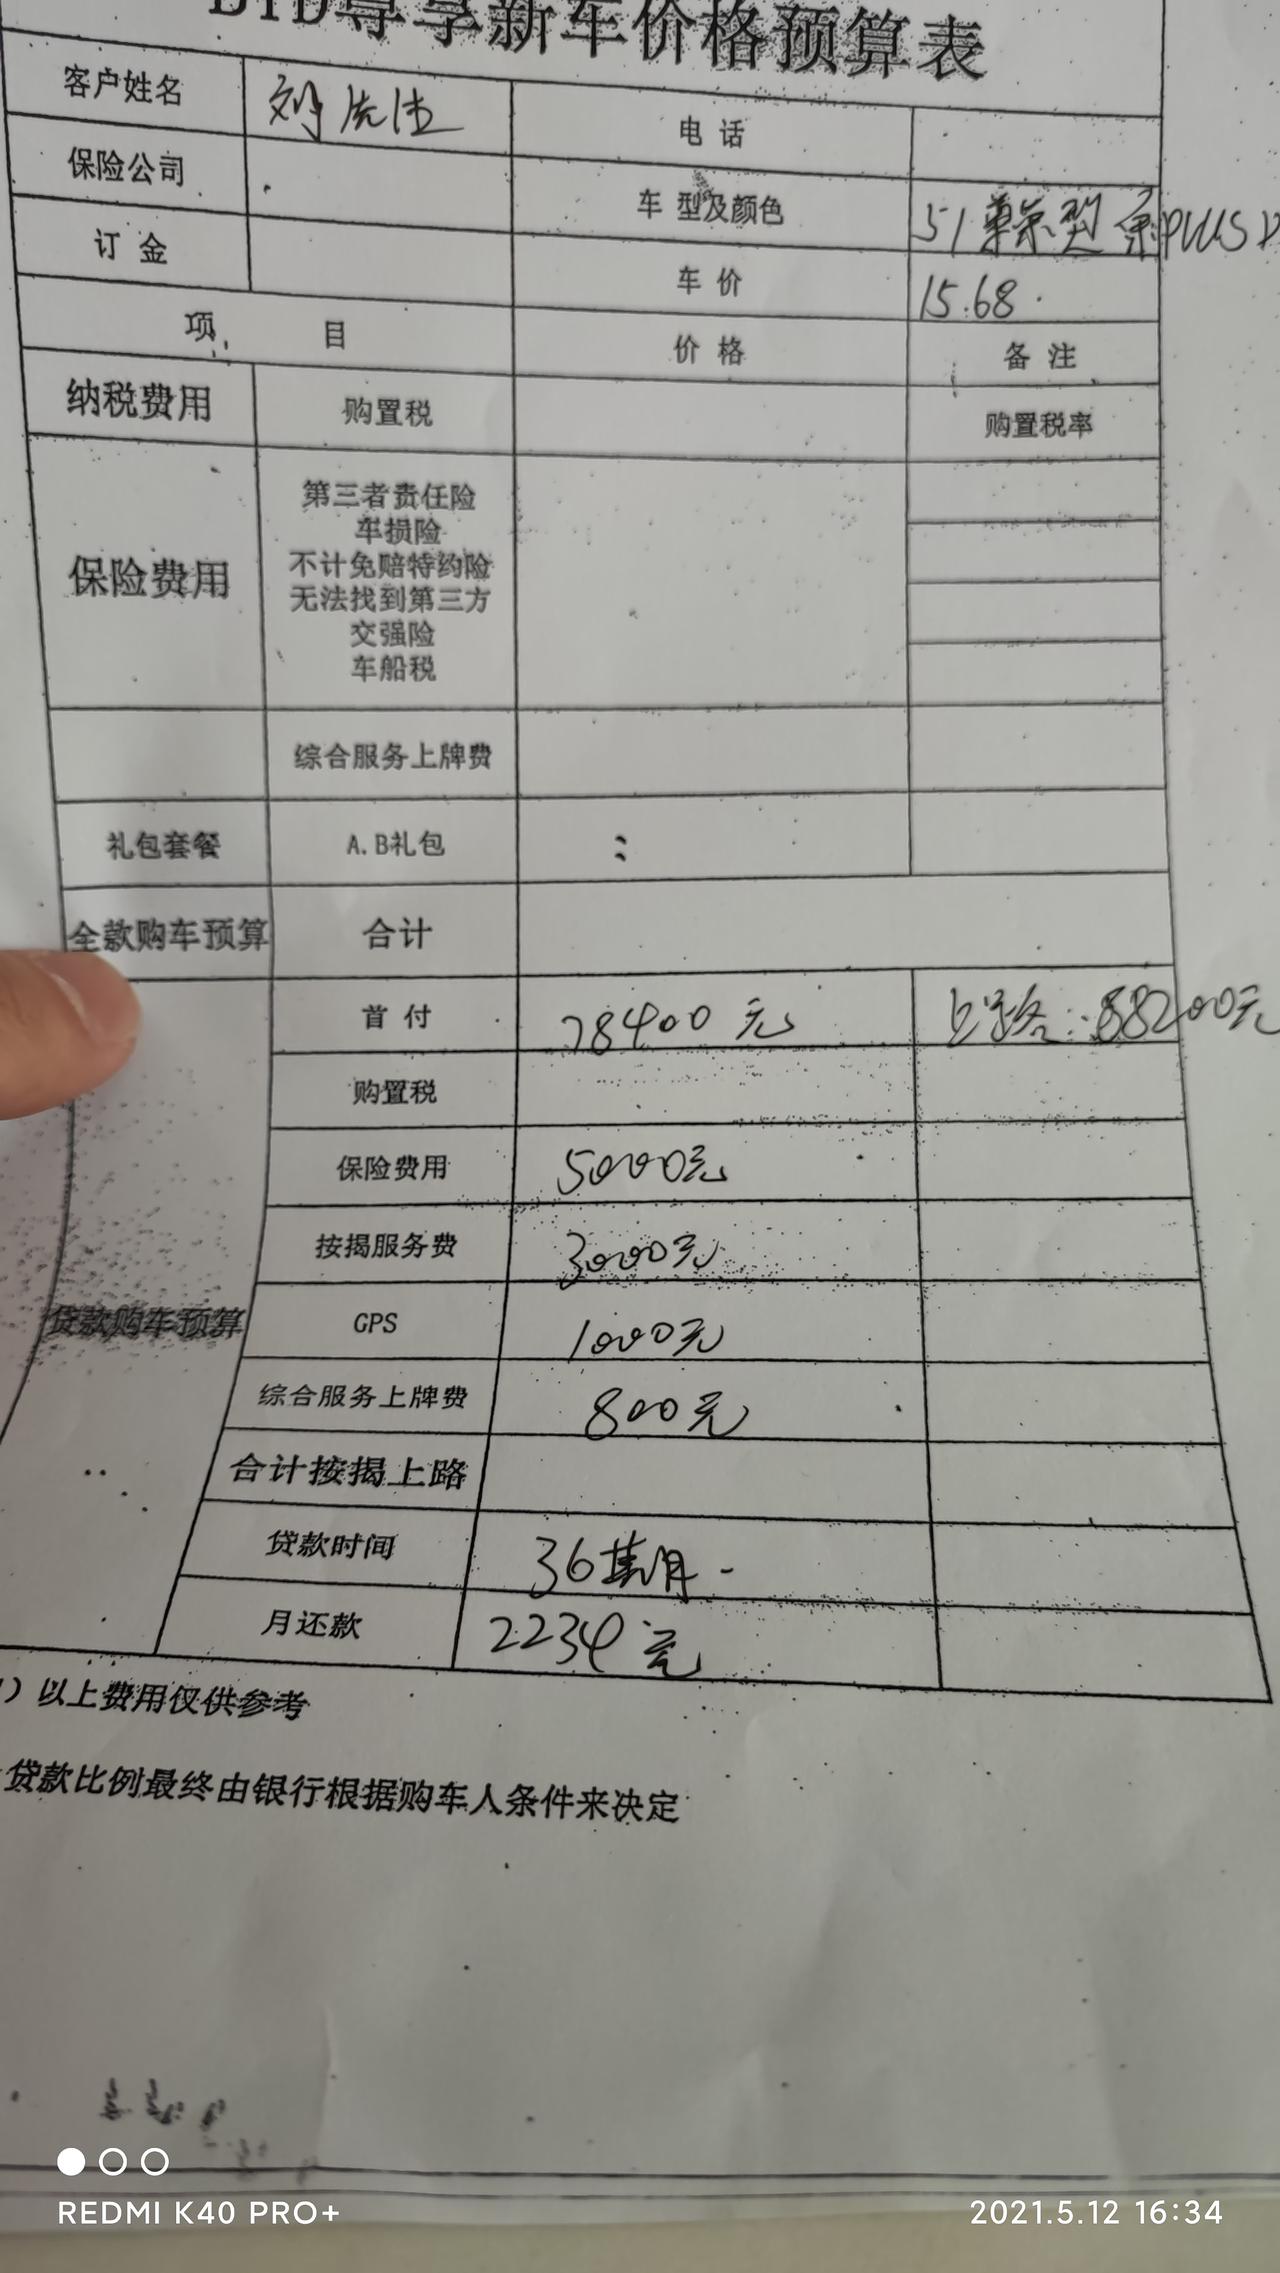 BYD尊享新车价格预算表
客户姓名 电话
保险公司 车型及颜色 51尊荣型 秦PLUS D
订金 车价 15.68
项目 价格 备注
纳税费用 购置税 购置税率
保险费用
第三者责任险
车损险
不计免赔特约险
无法找到第三方
交强险
车船税
综合服务上牌费
礼包套餐 A.B礼包
全款购车预算 合计
首付 78400元 上路：88200元
购置税
保险费用 5000元
按揭服务费 3000元
贷款购车预算
GPS 1000元
综合服务上牌费 800元
合计按揭上路
贷款时间 36期
月还款 2234元
）以上费用仅供参考
贷款比例最终由银行根据购车人条件来决定
REDMI K40 PRO+ 2021.5.12 16:34